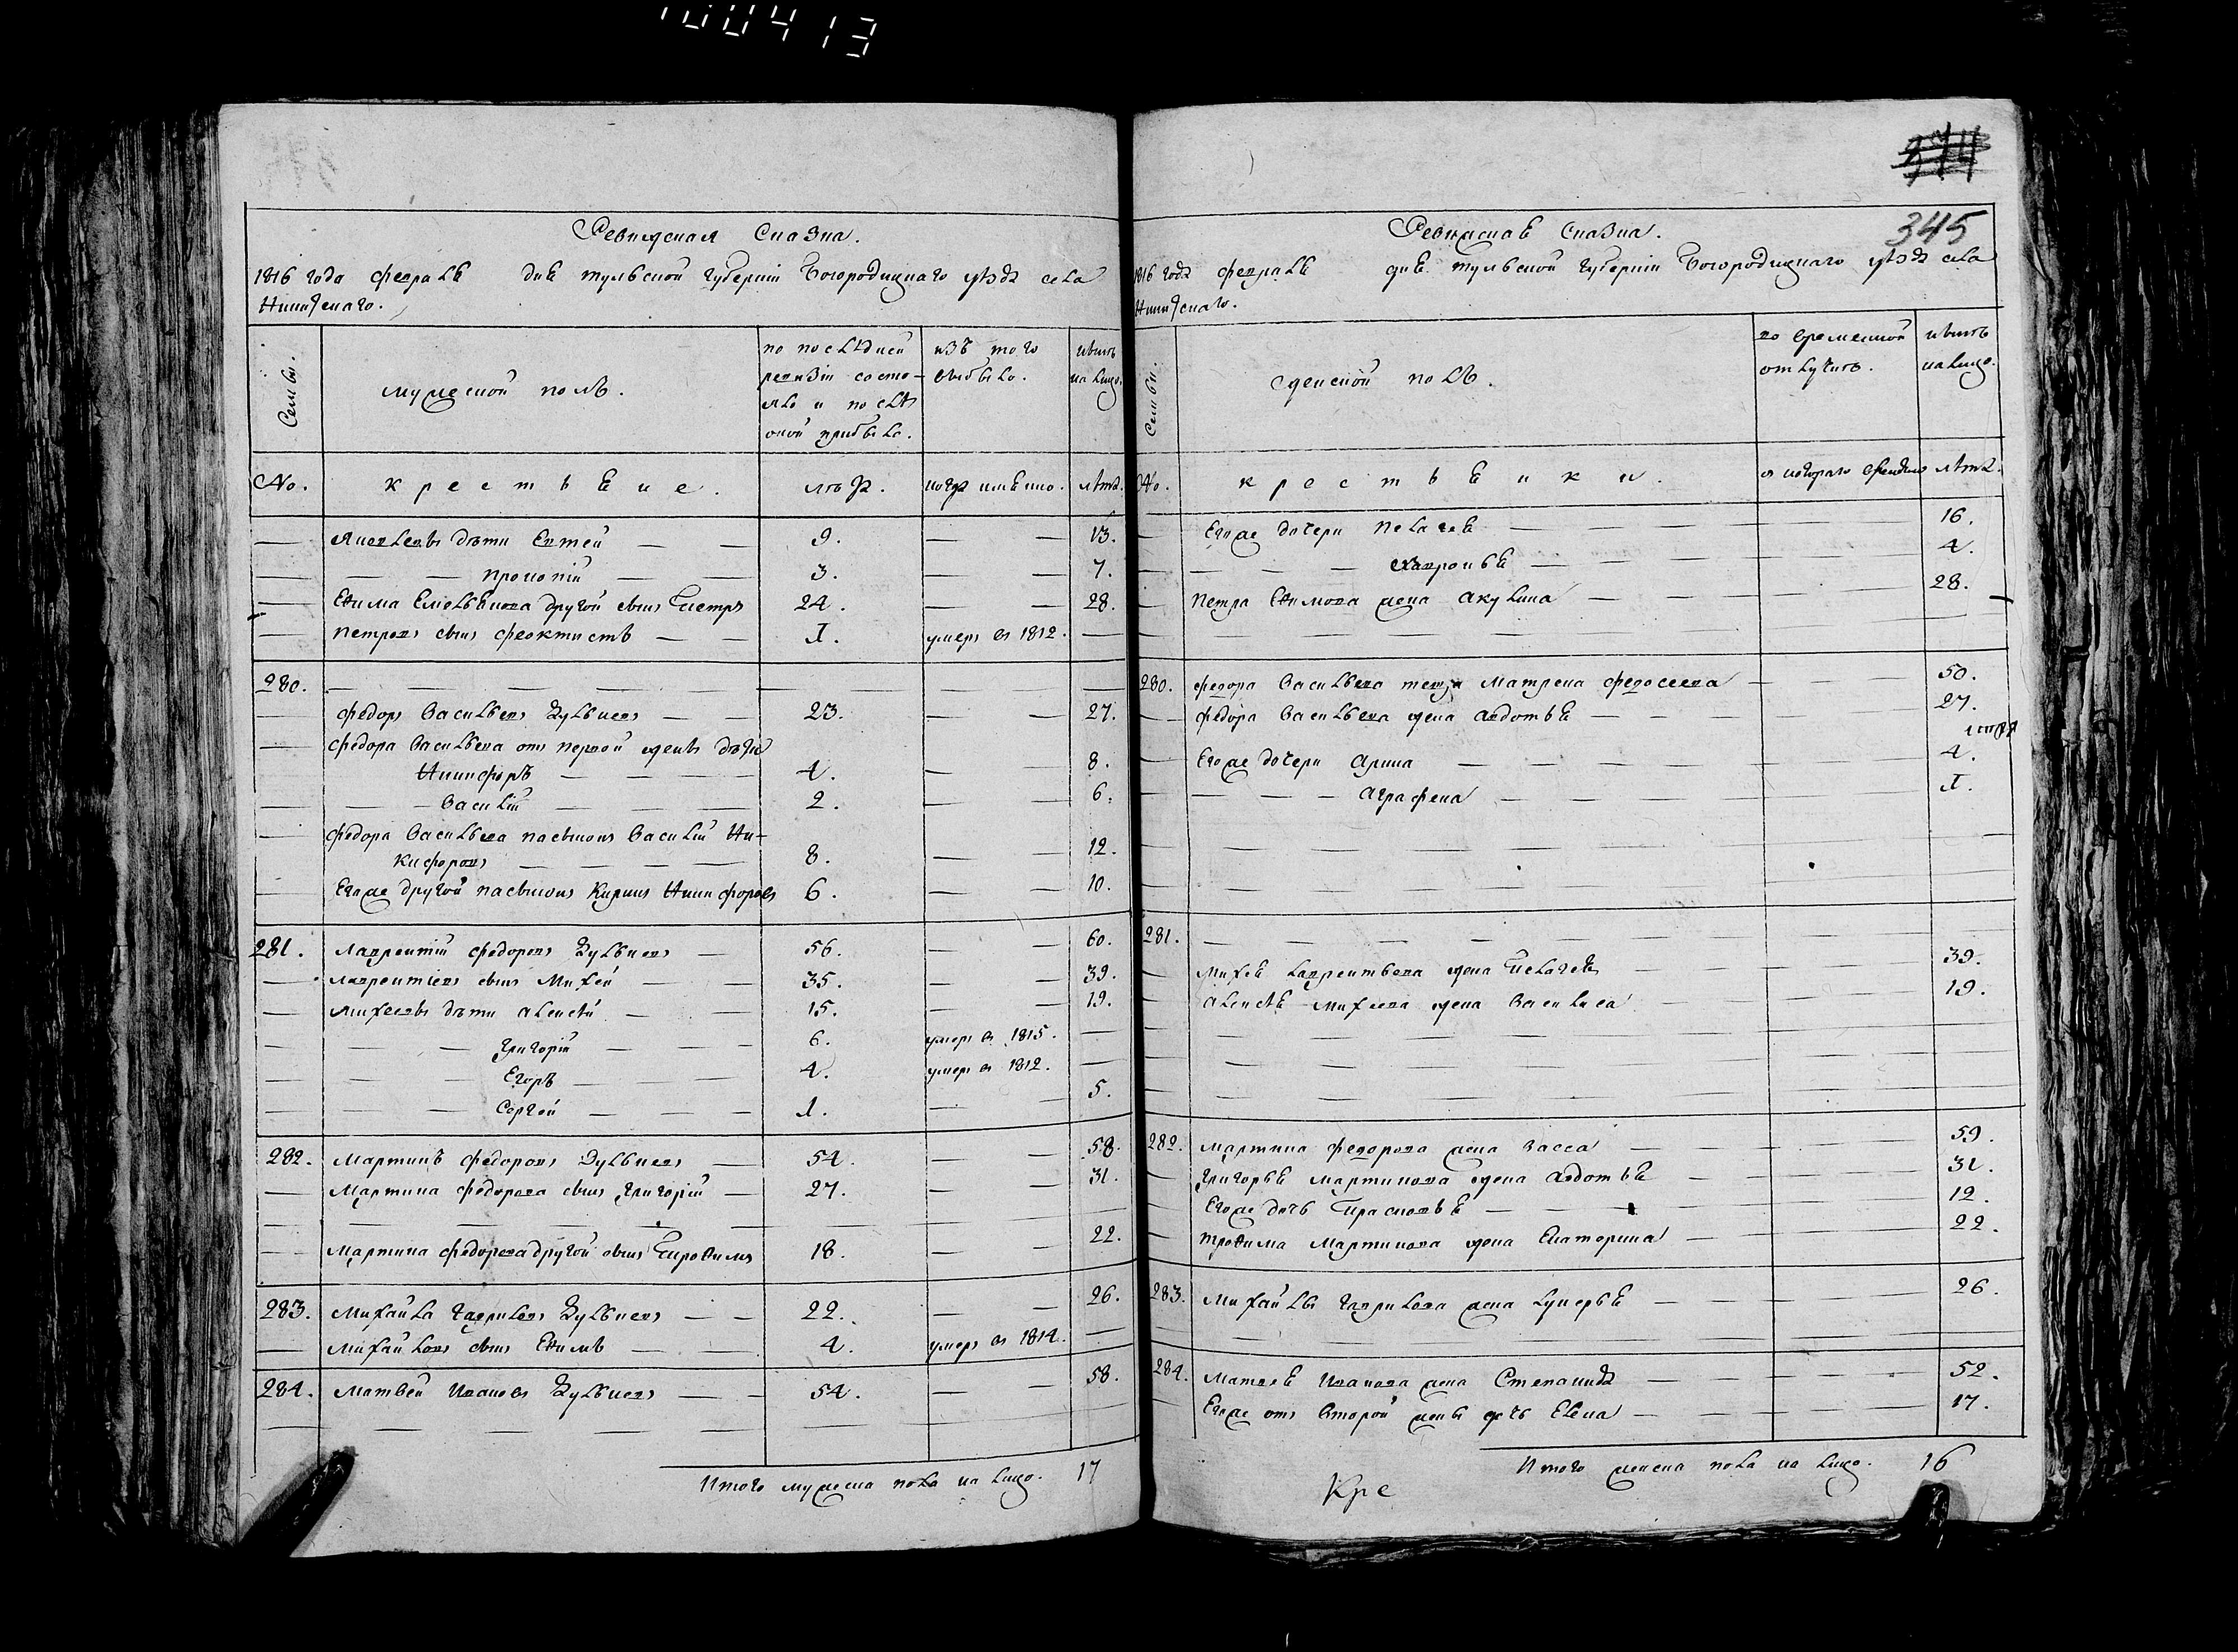 100413
Ревижская Сказка.
1816 года февраля дня тульской губернiи Богородицкаго уѣзда села
Никитскаго.
Семьи.
мужеской полъ.
по послѣдней
ревизiи состо-
яло и послѣ
оной прибыло.
изъ того
выбыло.
нынѣ
на лицо.
No.
крестьяне.
лѣта.
когда имянно.
лѣта.
Яковлевы дѣти Евтей — — 9. — — 13.
— — — Прокопiй — — 3. — — 7.
— Ефима Емельянова другой сынъ Петръ 24. — — 28.
— Петровъ сынъ Феоктистъ — — 1. умеръ въ 1812. —
280. — — — —
— Федоръ Васильевъ Зубковъ — — 23. — — 27.
— Федора Васильева отъ первой жены дѣти
Никифоръ — — — 4. — — 8.
— — — Василiй — — — 2. — — 6.
— Федора Васильева пасынокъ Василiй Ни-
кифоровъ — — — — 8. — — 12.
— Егоже другой пасынокъ Кирила Никифоровъ 6. — — 10.
281. Лаврентiй Федоровъ Зубковъ — 56. — — 60.
— Лаврентiевъ сынъ Михей — — 35. — — 39.
— Михеевы дѣти Алексѣй — — 15. — — 19.
— — — Григорiй — — — 6. умеръ въ 1815. —
— — — Егоръ — — — 4. умеръ въ 1812. —
— — — Сергей — — — 1. — — 5.
282. Мартинъ Федоровъ Зубковъ — 54. — — 58.
— Мартина Федорова сынъ Григорiй — 27. — — 31.
— — — —
— Мартина Федорова другой сынъ Трофимъ 18. — — 22.
283. Михайла Гавриловъ Зубковъ — — 22. — — 26.
— Михайловъ сынъ Ефимъ — — 4. умеръ въ 1814. —
284. Матвей Ивановъ Зубковъ — — 54. — — 58.
Итого мужеска пола на лицо. 17
345
Ревижская Сказка.
1816 года февраля дня тульской губернiи Богородицкаго уѣзда села
Никитскаго.
Семьи.
женской полъ.
во временной
отлучкѣ.
нынѣ
на лицо.
No.
крестьянки.
съ котораго времени
лѣта.
— Егоже дочери Пелагея — — — 16.
— — — — Хавронья — — 4.
— Петра Ефимова жена Акулина — — 28.
280. Федора Васильева теща Матрена Федосеева — 50.
— Федора Васильева жена Авдотья — — — 27.
— Егоже дочери Арина — — — 4.
— — — — Аграфена — — — 1.
281. — — — —
— Михея Лаврентьева жена Пелагея — — 39.
— Алексѣя Михеева жена Василиса — — 19.
282. Мартина Федорова жена Васса — — 59.
— Григорья Мартинова жена Авдотья — — 31.
— Егоже дочь Прасковья — — — 12.
— Трофима Мартинова жена Екатерина — — 22.
283. Михайлы Гаврилова жена Лукерья — — 26.
284. Матвея Иванова жена Степанида — — 52.
— Егоже отъ второй жены дочь Елена — — 17.
Итого женска пола на лицо. 16
Кре